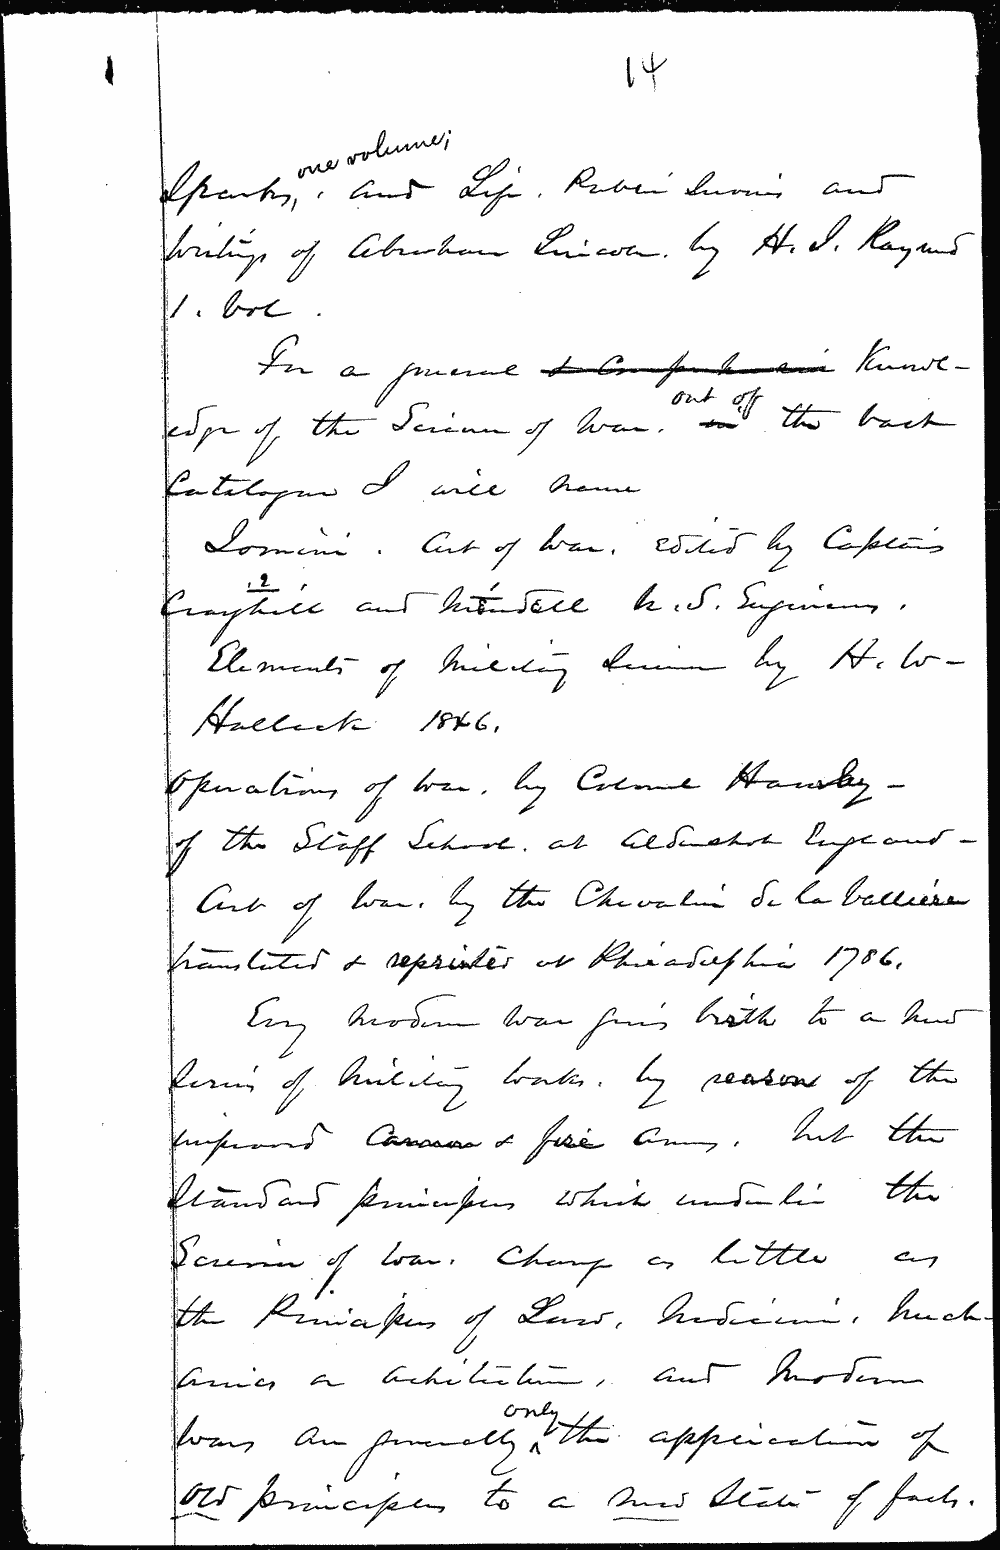 14
one volume;
Sparks, and Life. Public Services and
Writings of Abraham Lincoln. by H. J. Raymond
1. Vol.
For a general & Comprehensive Knowl-
out of
edge of the Science of War. in the vast
Catalogue I will name
Jomini. Art of War. edited by Captains
.?
Craighill and Mendell U.S. Engineers.
Elements of Military Science by H. W-
Halleck 1846.
Operations of War. by Colonel Hamley-
of the Staff School. at Aldershot England-
Art of War. by the Chevalier de la Valliere
translated & reprinted at Philadelphia 1786.
Every modern War gives birth to a new
Series of Military books. by reason of the
improved Cannon & fire arms. but the
Standard principles which underlie the
Science of War. Change as little as
the Principles of Law, Medicine, Mech-
anics or architecture, and Modern
only
Wars are generally ^ the application of
old principles to a new State of facts.